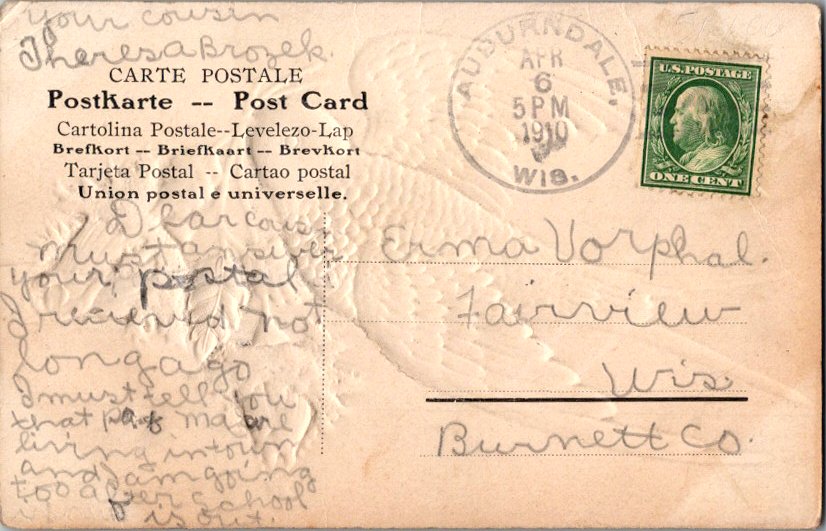 your cousin
Theresa Brozek.
CARTE POSTALE
Postkarte -- Post Card
Cartolina Postale--Levelezo-Lap
Brefkort -- Briefkaart -- Brevkort
Tarjeta Postal -- Cartao postal
Union postal e universelle.
AUBURNDALE,
APR
6
5 PM
1910
WIS.
U.S. POSTAGE
ONE CENT
Dear cous
must answer
your postal
I recieved not
long ago
I must tell you
that pa & ma are
living in town
and I am going
too after school
is out.
Erma Vorphal.
Fairview
Wis.
Burnett Co.